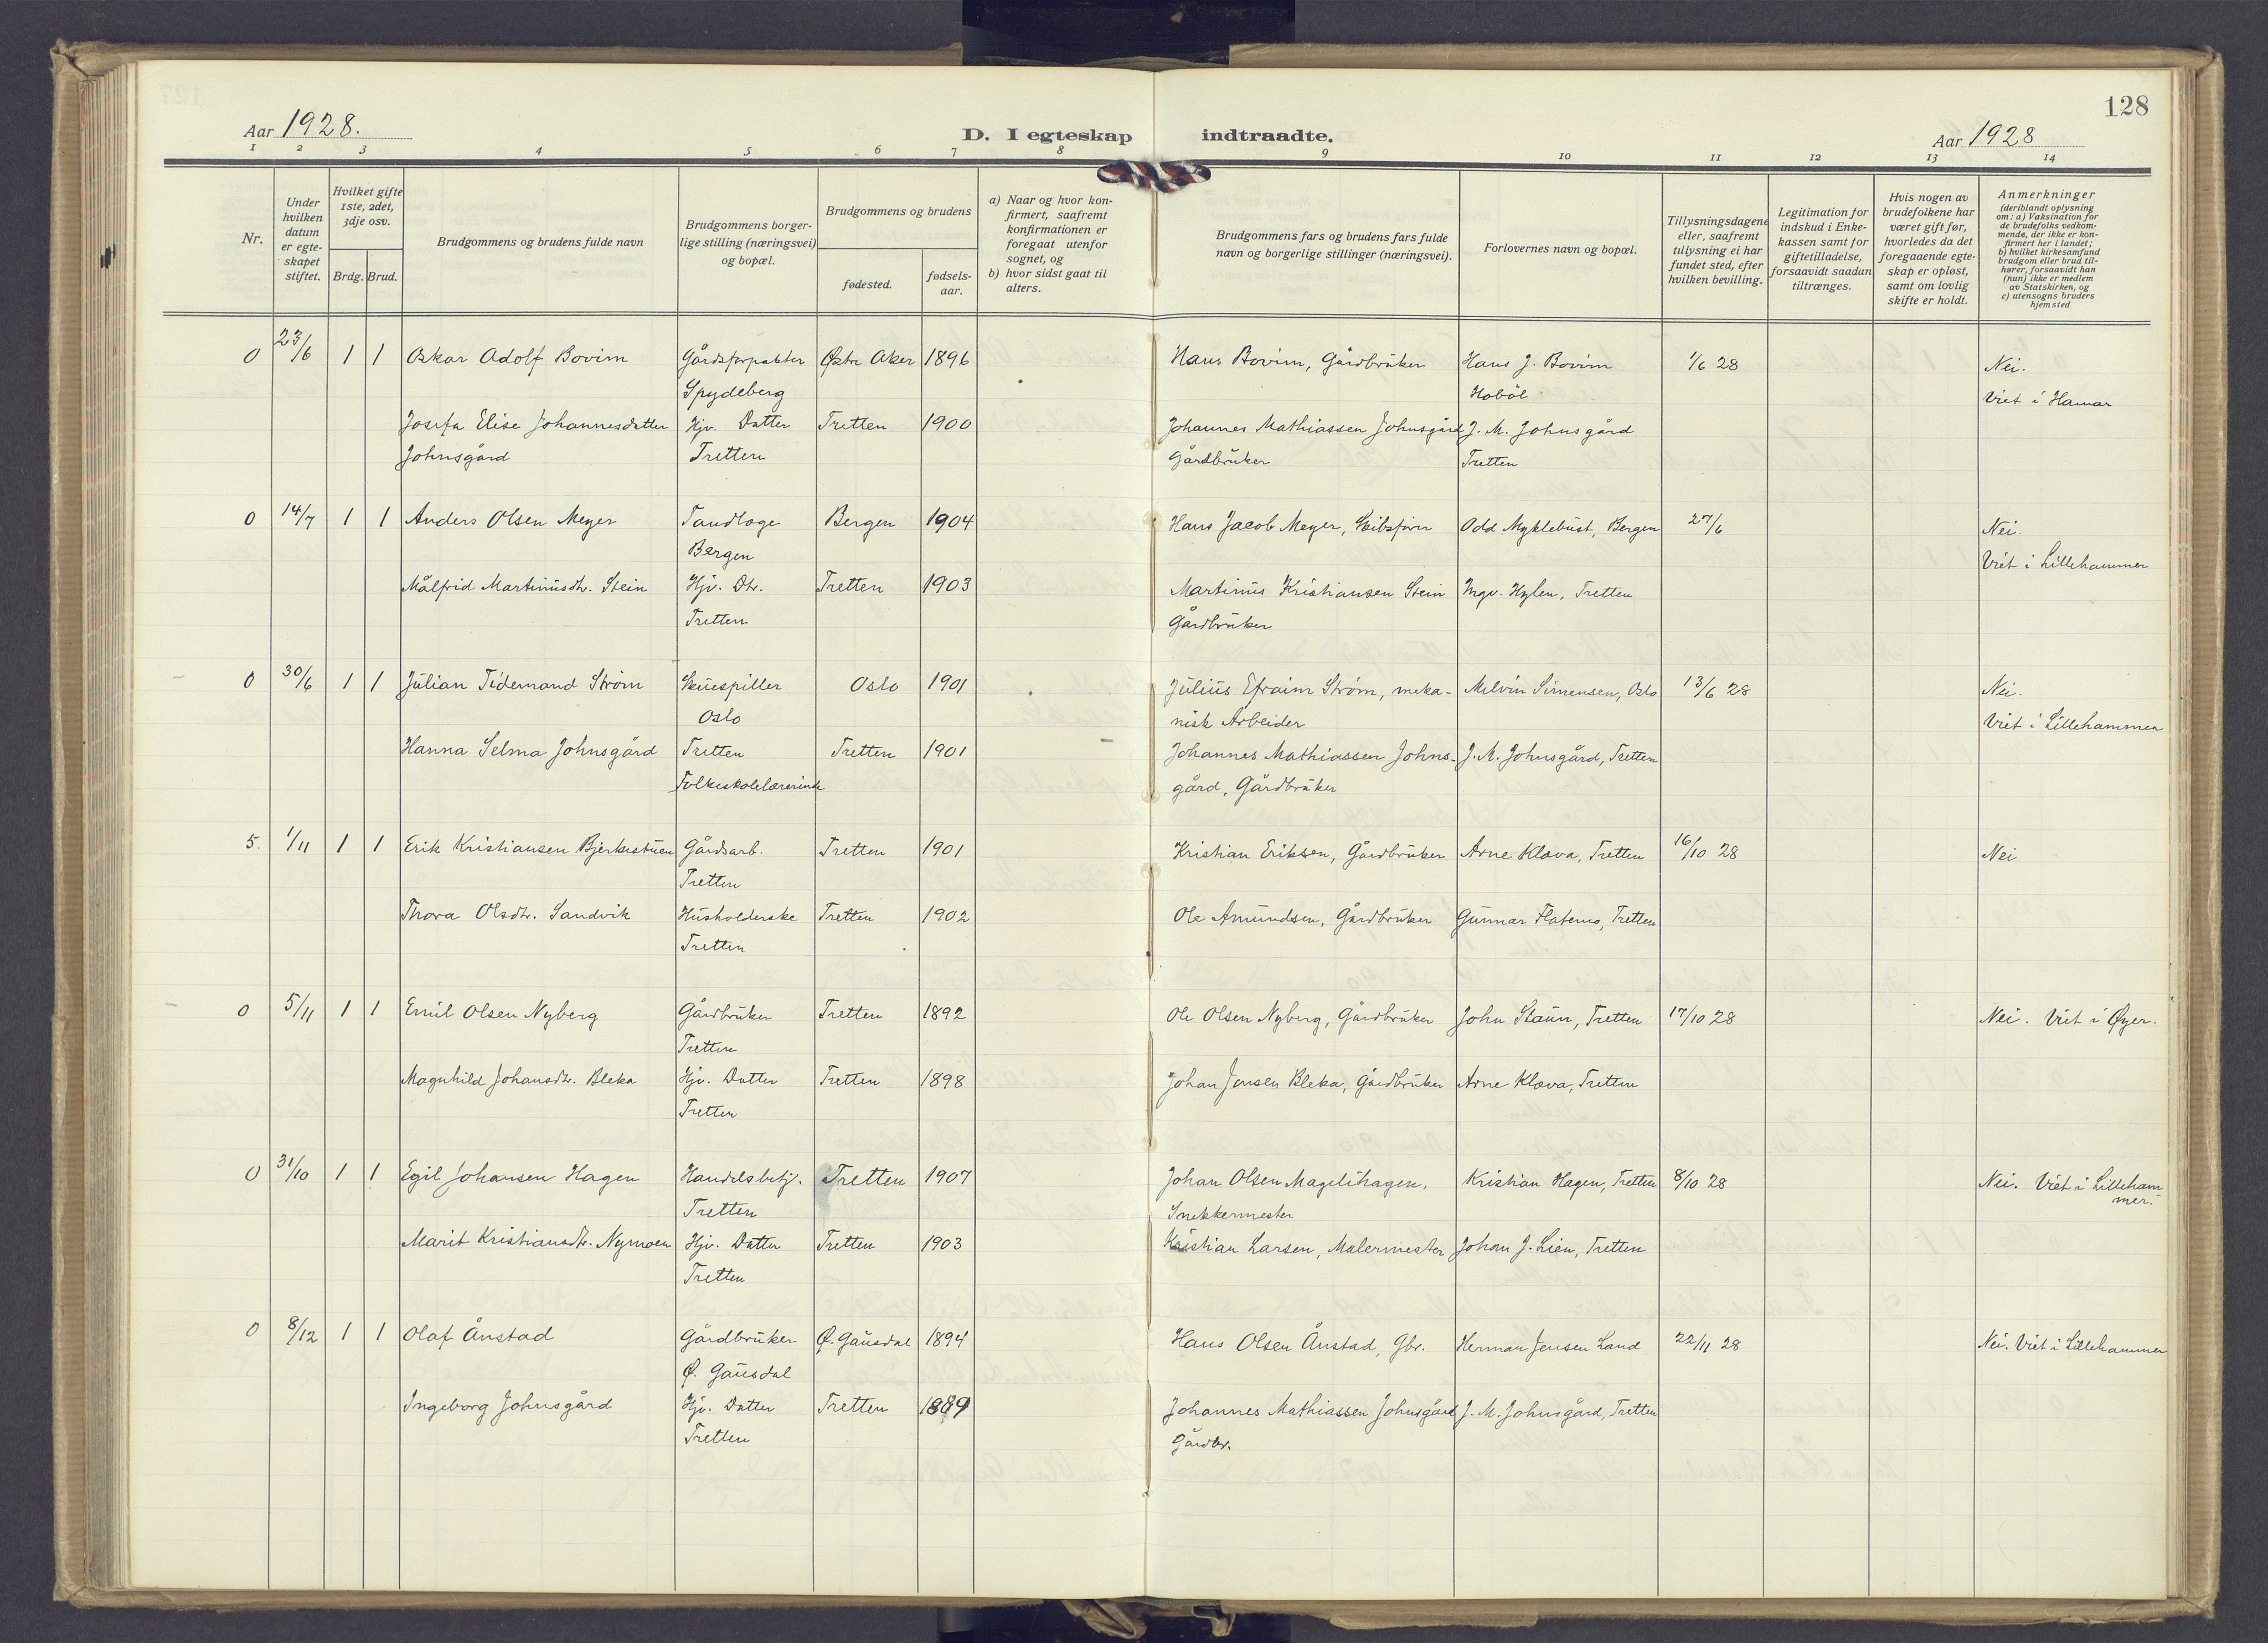 128
Aar 1928.
D. I egteskap indtraadte.
Aar 1928
1 2 3 4 5 6 7 8 9 10 11 12 13 14
Nr.
Under hvilken datum er egteskapet stiftet.
Hvilket gifte 1ste, 2det, 3dje osv.
Brdg. Brud.
Brudgommens og brudens fulde navn
Brudgommens borgerlige stilling (næringsvei) og bopæl.
Brudgommens og brudens
fødested.
fødselsaar.
a) Naar og hvor konfirmert, saafremt konfirmationen er foregaat utenfor sognet, og
b) hvor sidst gaat til alters.
Brudgommens fars og brudens fars fulde navn og borgerlige stillinger (næringsvei).
Forlovernes navn og bopæl.
Tillysningsdagene eller, saafremt tilysning ei har fundet sted, efter hvilken bevilling.
Legitimation for indskud i Enkekassen samt for giftetilladelse, forsaavidt saadan tiltrænges.
Hvis nogen av brudefolkene har været gift før, hvorledes da det foregaaende egteskap er opløst, samt om lovlig skifte er holdt.
Anmerkninger
(deriblandt oplysning om: a) Vaksination for de brudefolks vedkommende, der ikke er konfirmert her i landet; b) hvilket kirkesamfund brudgom eller brud tilhører, forsaavidt han (hun) ikke er medlem av Statskirken, og c) utensogns bruders hjemsted
0 23/6 1 1 Oskar Adolf Bovim Gårdsforpakter Østre Aker 1896 Hans Bovim, Gårdbruker Hans J. Bovim 1/6 28 Nei.
Spydeberg Hobøl Viet i Hamar
Josefa Elise Johannesdatter Hjv. Datter Tretten 1900 Johannes Mathiassen Johnsgård J. M. Johnsgård
Johnsgård Tretten Gårdbruker Tretten
0 14/7 1 1 Anders Olsen Meyer Tandlæge Bergen 1904 Hans Jacob Meyer, Skibsfører Odd Myklebust, Bergen 27/6 Nei.
Bergen Viet i Lillehammer
Målfrid Martinusdtr. Stein Hjv. Dtr. Tretten 1903 Martinus Kristiansen Stein Ingv. Hylen, Tretten
Tretten Gårdbruker
0 30/6 1 1 Julian Tidemand Strøm Skuespiller Oslo 1901 Julius Efraim Strøm, meka- Melvin Simensen, Oslo 13/6 28 Nei.
Oslo nisk Arbeider Viet i Lillehammer
Hanna Selma Johnsgård Tretten Tretten 1901 Johannes Mathiassen Johns- J. M. Johnsgård, Tretten
Folkeskolelærerinde gård, Gårdbruker
5. 1/11 1 1 Erik Kristiansen Bjerkestuen Gårdsarb. Tretten 1901 Kristian Eriksen, Gårdbruker Arne Klæva, Tretten 16/10 28 Nei
Tretten
Thora Olsdtr. Sandvik Husholderske Tretten 1902 Ole Amundsen, Gårdbruker Gunnar Flatemo, Tretten
Tretten
0 5/11 1 1 Emil Olsen Nyberg Gårdbruker Tretten 1892 Ole Olsen Nyberg, Gårdbruker John Staun, Tretten 17/10 28 Nei. Viet i Øyer.
Tretten
Magnhild Johansdtr. Bleka Hjv. Datter Tretten 1898 Johan Jensen Bleka, Gårdbruker Arne Klæva, Tretten
Tretten
0 31/10 1 1 Egil Johansen Hagen Handelsbetj. Tretten 1907 Johan Olsen Magelihagen, Kristian Hagen, Tretten 8/10 28 Nei. Viet i Lilleham
Tretten Snekkermester mer.
Marit Kristiansdtr. Nymoen Hjv. Datter Tretten 1903 Kristian Larsen, Malermester Johan J. Lien, Tretten
Tretten
0 8/12 1 1 Olaf Ånstad Gårdbruker Ø. Gausdal 1894 Hans Olsen Ånstad, Gbr. Herman Jensen Land 22/11 28 Nei. Viet i Lillehammer
Ø. Gausdal
Ingeborg Johnsgård Hjv. Datter Tretten 1889 Johannes Mathiassen Johnsgård J. M. Johnsgård, Tretten
Tretten Gårdbr.